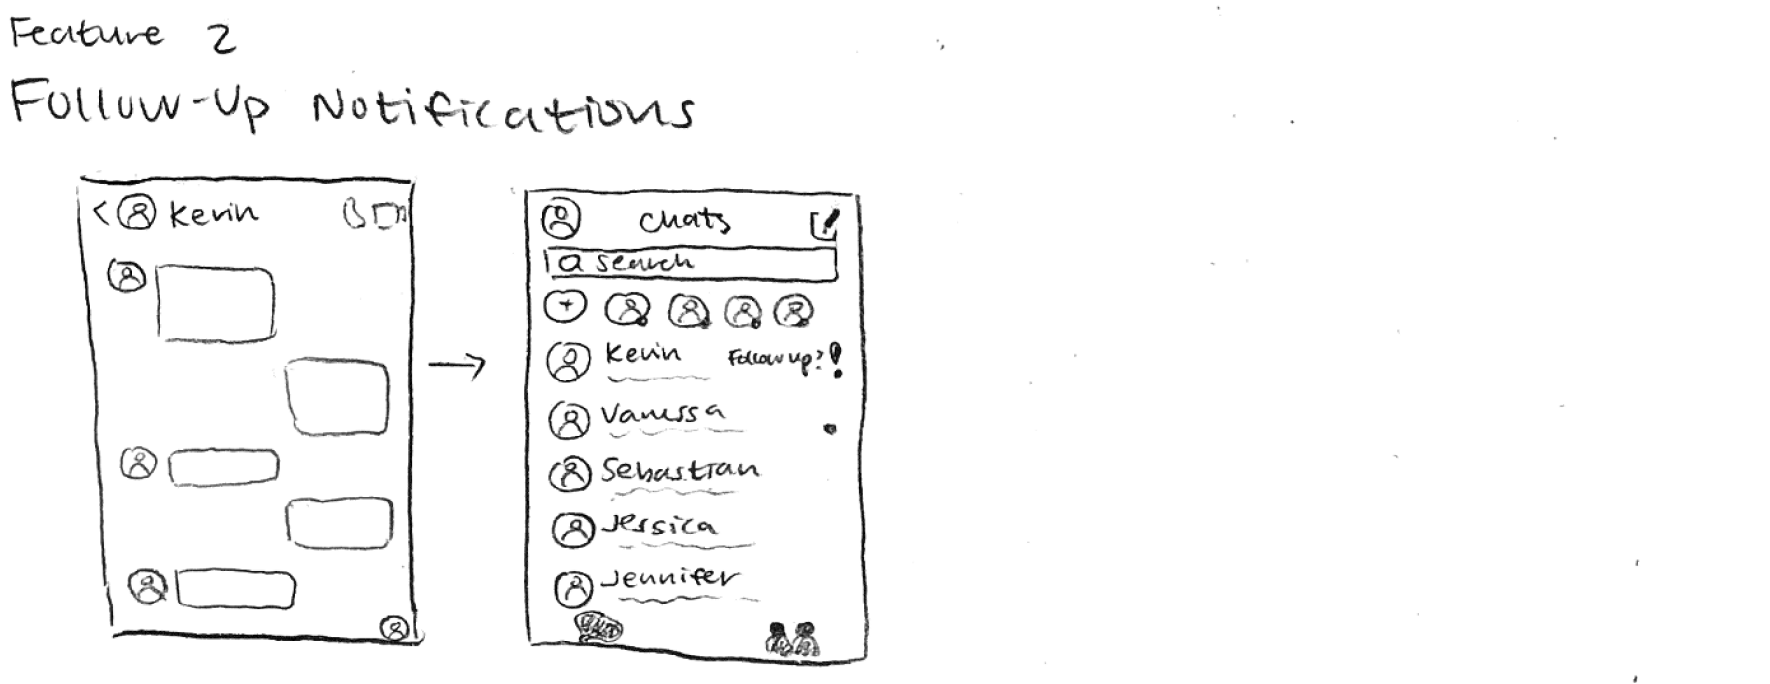 Feature 2
Follow-Up Notifications
< Kevin
Chats
search
+
Kevin Follow up? !
Vanessa
Sebastian
Jessica
Jennifer